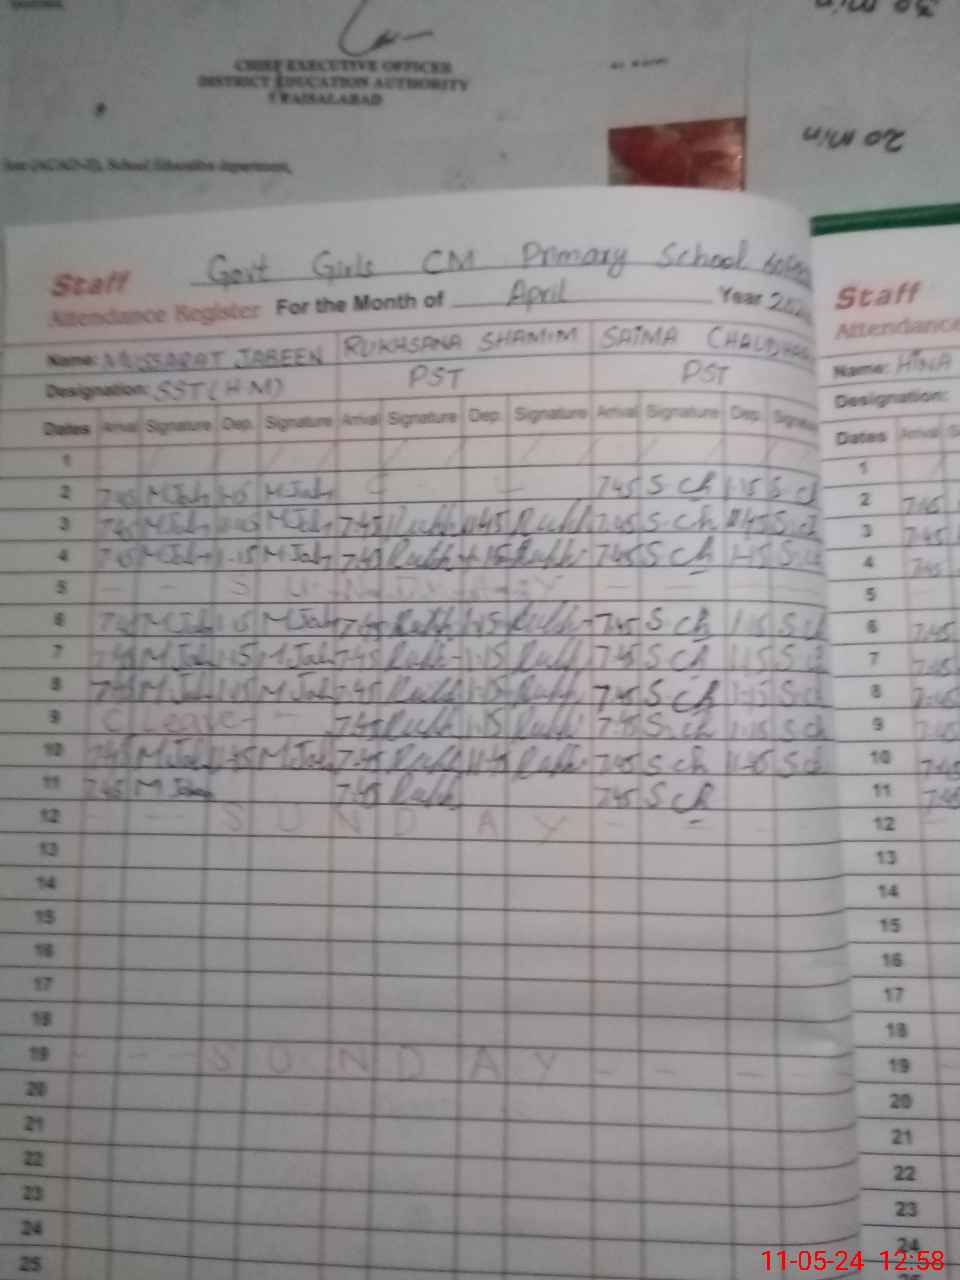 CHIEF EXECUTIVE OFFICER
DISTRICT EDUCATION AUTHORITY
FAISALABAD
20 min
School Education department,
Staff Govt Girls CM Primary School
Attendance Register For the Month of April Year
Name: MUSSARAT JABEEN RUKHSANA SHAMIM SAIMA CHAUDHARY
Designation: SST (H M) PST PST
Dates Arrival Signature Dep. Signature Arrival Signature Dep. Signature Arrival Signature Dep. Signature
1
2 7:45 M Jab 1:15 M Jab 7:45 S. Ch 1:15 S. Ch
3 7:45 M Jab M Jab 7:45 Rukh 11:45 Rukh 7:45 S. Ch 11:45 S. Ch
4 7:45 M Jab 1:15 M Jab 7:45 Rukh 1:15 Rukh 7:45 S. Ch 1:15 S. Ch
5 - - S U N D A Y - -
6 7:45 M Jab 1:15 M Jab 7:45 Rukh 1:15 Rukh 7:45 S. Ch 1:15 S. Ch
7 7:45 M Jab 1:15 M Jab 7:45 Rukh 1:15 Rukh 7:45 S. Ch 1:15 S. Ch
8 7:45 M Jab 1:15 M Jab 7:45 Rukh 1:15 Rukh 7:45 S. Ch 1:15 S. Ch
9 C Leave - - 7:45 Rukh 1:15 Rukh 7:45 S. Ch 1:15 S. Ch
10 7:45 M Jab 11:45 M Jab 7:45 Rukh 11:45 Rukh 7:45 S. Ch 11:45 S. Ch
11 7:45 M Jab 7:45 Rukh 7:45 S. Ch
12 - - - S U N D A Y - - -
13
14
15
16
17
18
19 - - - S U N D A Y - - - -
20
21
22
23
24
25
Staff
Attendance
Name: HINA
Designation:
Dates Arrival
1
2 7:45
3 7:45
4 7:45
5
6 7:45
7 7:45
8 7:45
9 7:45
10 7:45
11 7:45
12
13
14
15
16
17
18
19
20
21
22
23
24
11-05-24 12:58